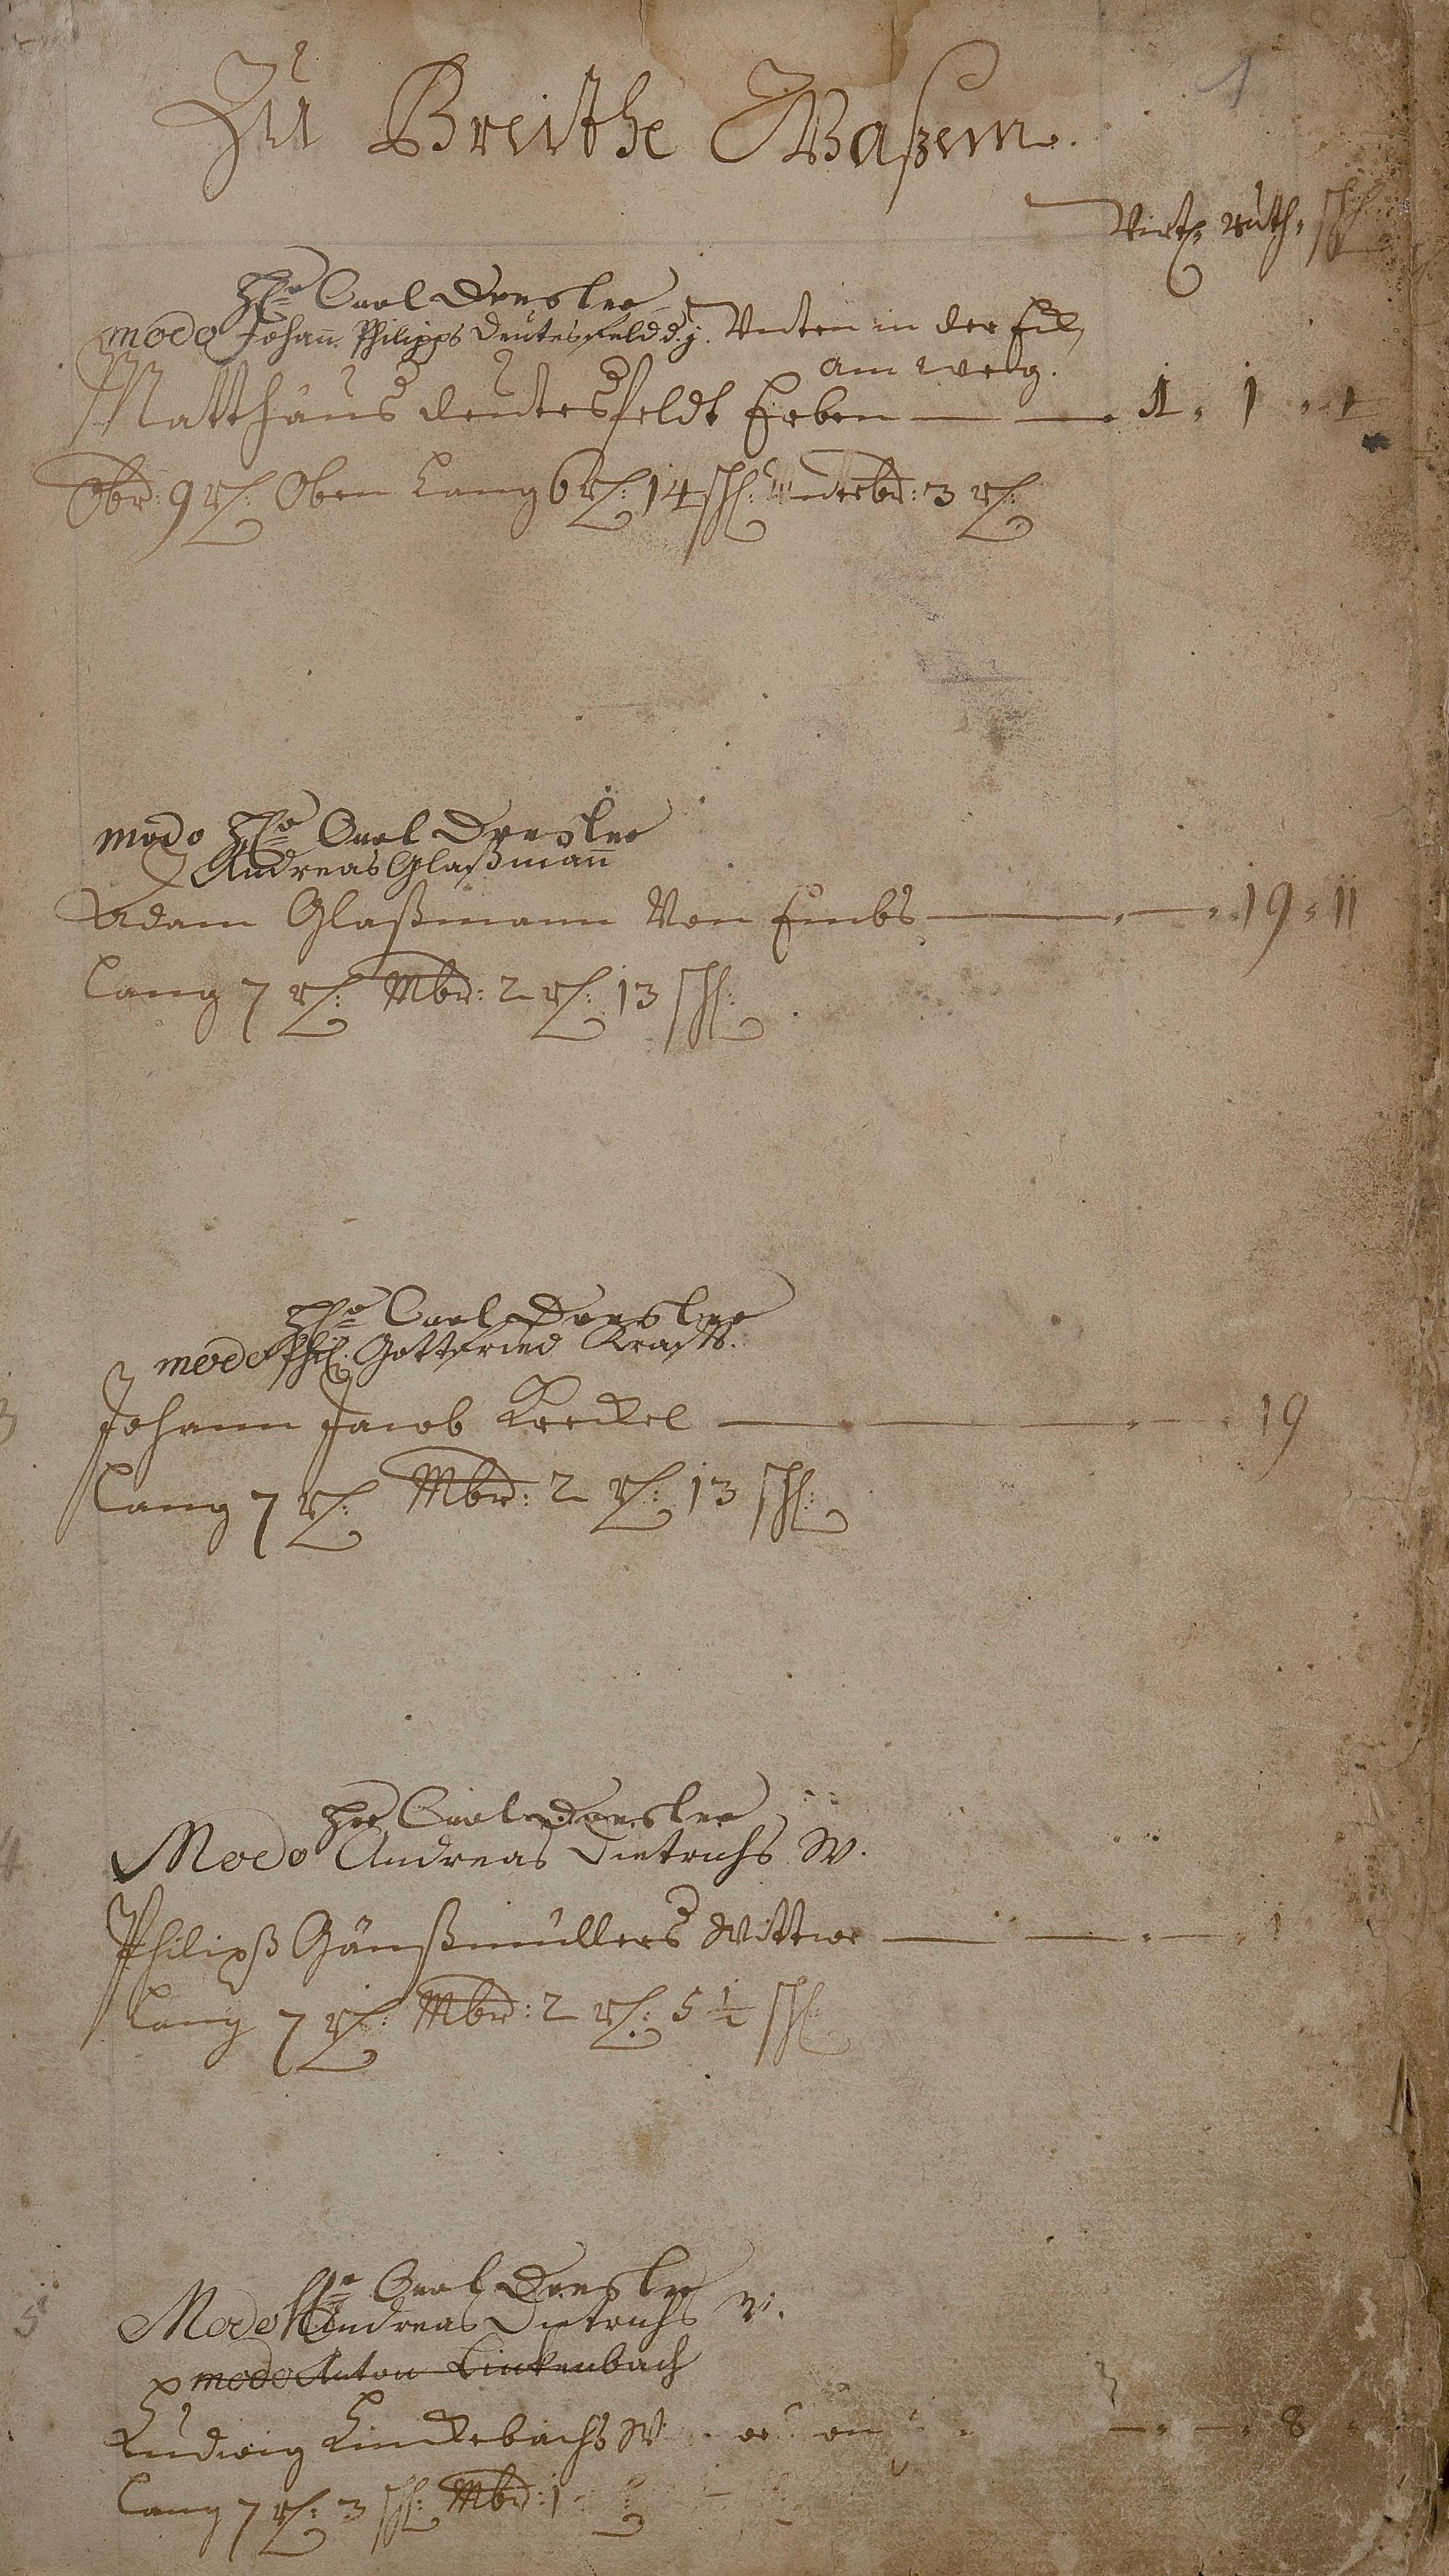 1
Zu Breithe Waßem.
Virtz Ruth. sch:
Hr Carl Dresler
modo Johann Philipps Deutesfeld d. j. Unten in der Eil,
am weeg.
Matthäus deutesfeldt Erben 1. 1. 1
Obr: 9 r: Oben Lang 6 r: 14 sch: Underbr: 3 r:
modo Hr Carl Dresler
Andreas Glaßmann
Adam Glaßmann Von Embs 19. 11
Lang 7 r: Mbr: 2 r: 13 sch:
Hr Carl Dresler
modo Phil: Gottfried Krafft.
Johann Jacob Keckel 19
Lang 7 r: Mbr: 2 r: 13 sch:
4
Hr Carl Dresler
Modo Andreas Dietrichs W.
Philipß Gämßmüllers Wittwe 1
Lang 7 r: Mbr: 2 r: 5 1/2 sch:
5
Hr Carl Dresler
Modo Andreas Dietrichs W.
modo Anton Linkenbach
Ludwig Linckebachs W 8
Lang 7 r: 3 sch: Mbr: 1